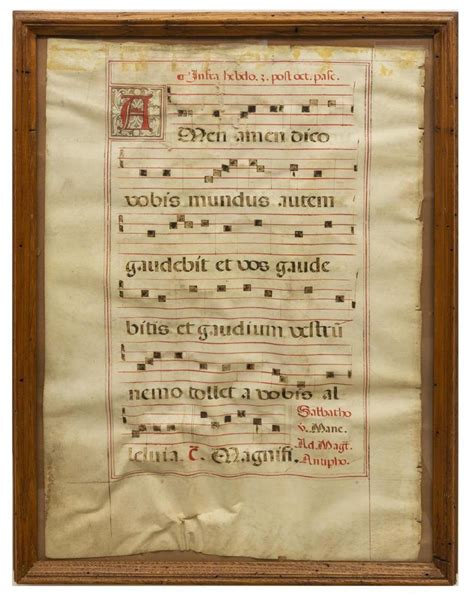 Infra hebdo. 3. post oct. pasc.
AMen amen dico
vobis mundus autem
gaudebit et vos gaude
bitis et gaudium vestrū
nemo tollet a vobis al
leluia. Magnifi.
Sabbatho
v. Mane.
Ad. Magt.
Antipho.